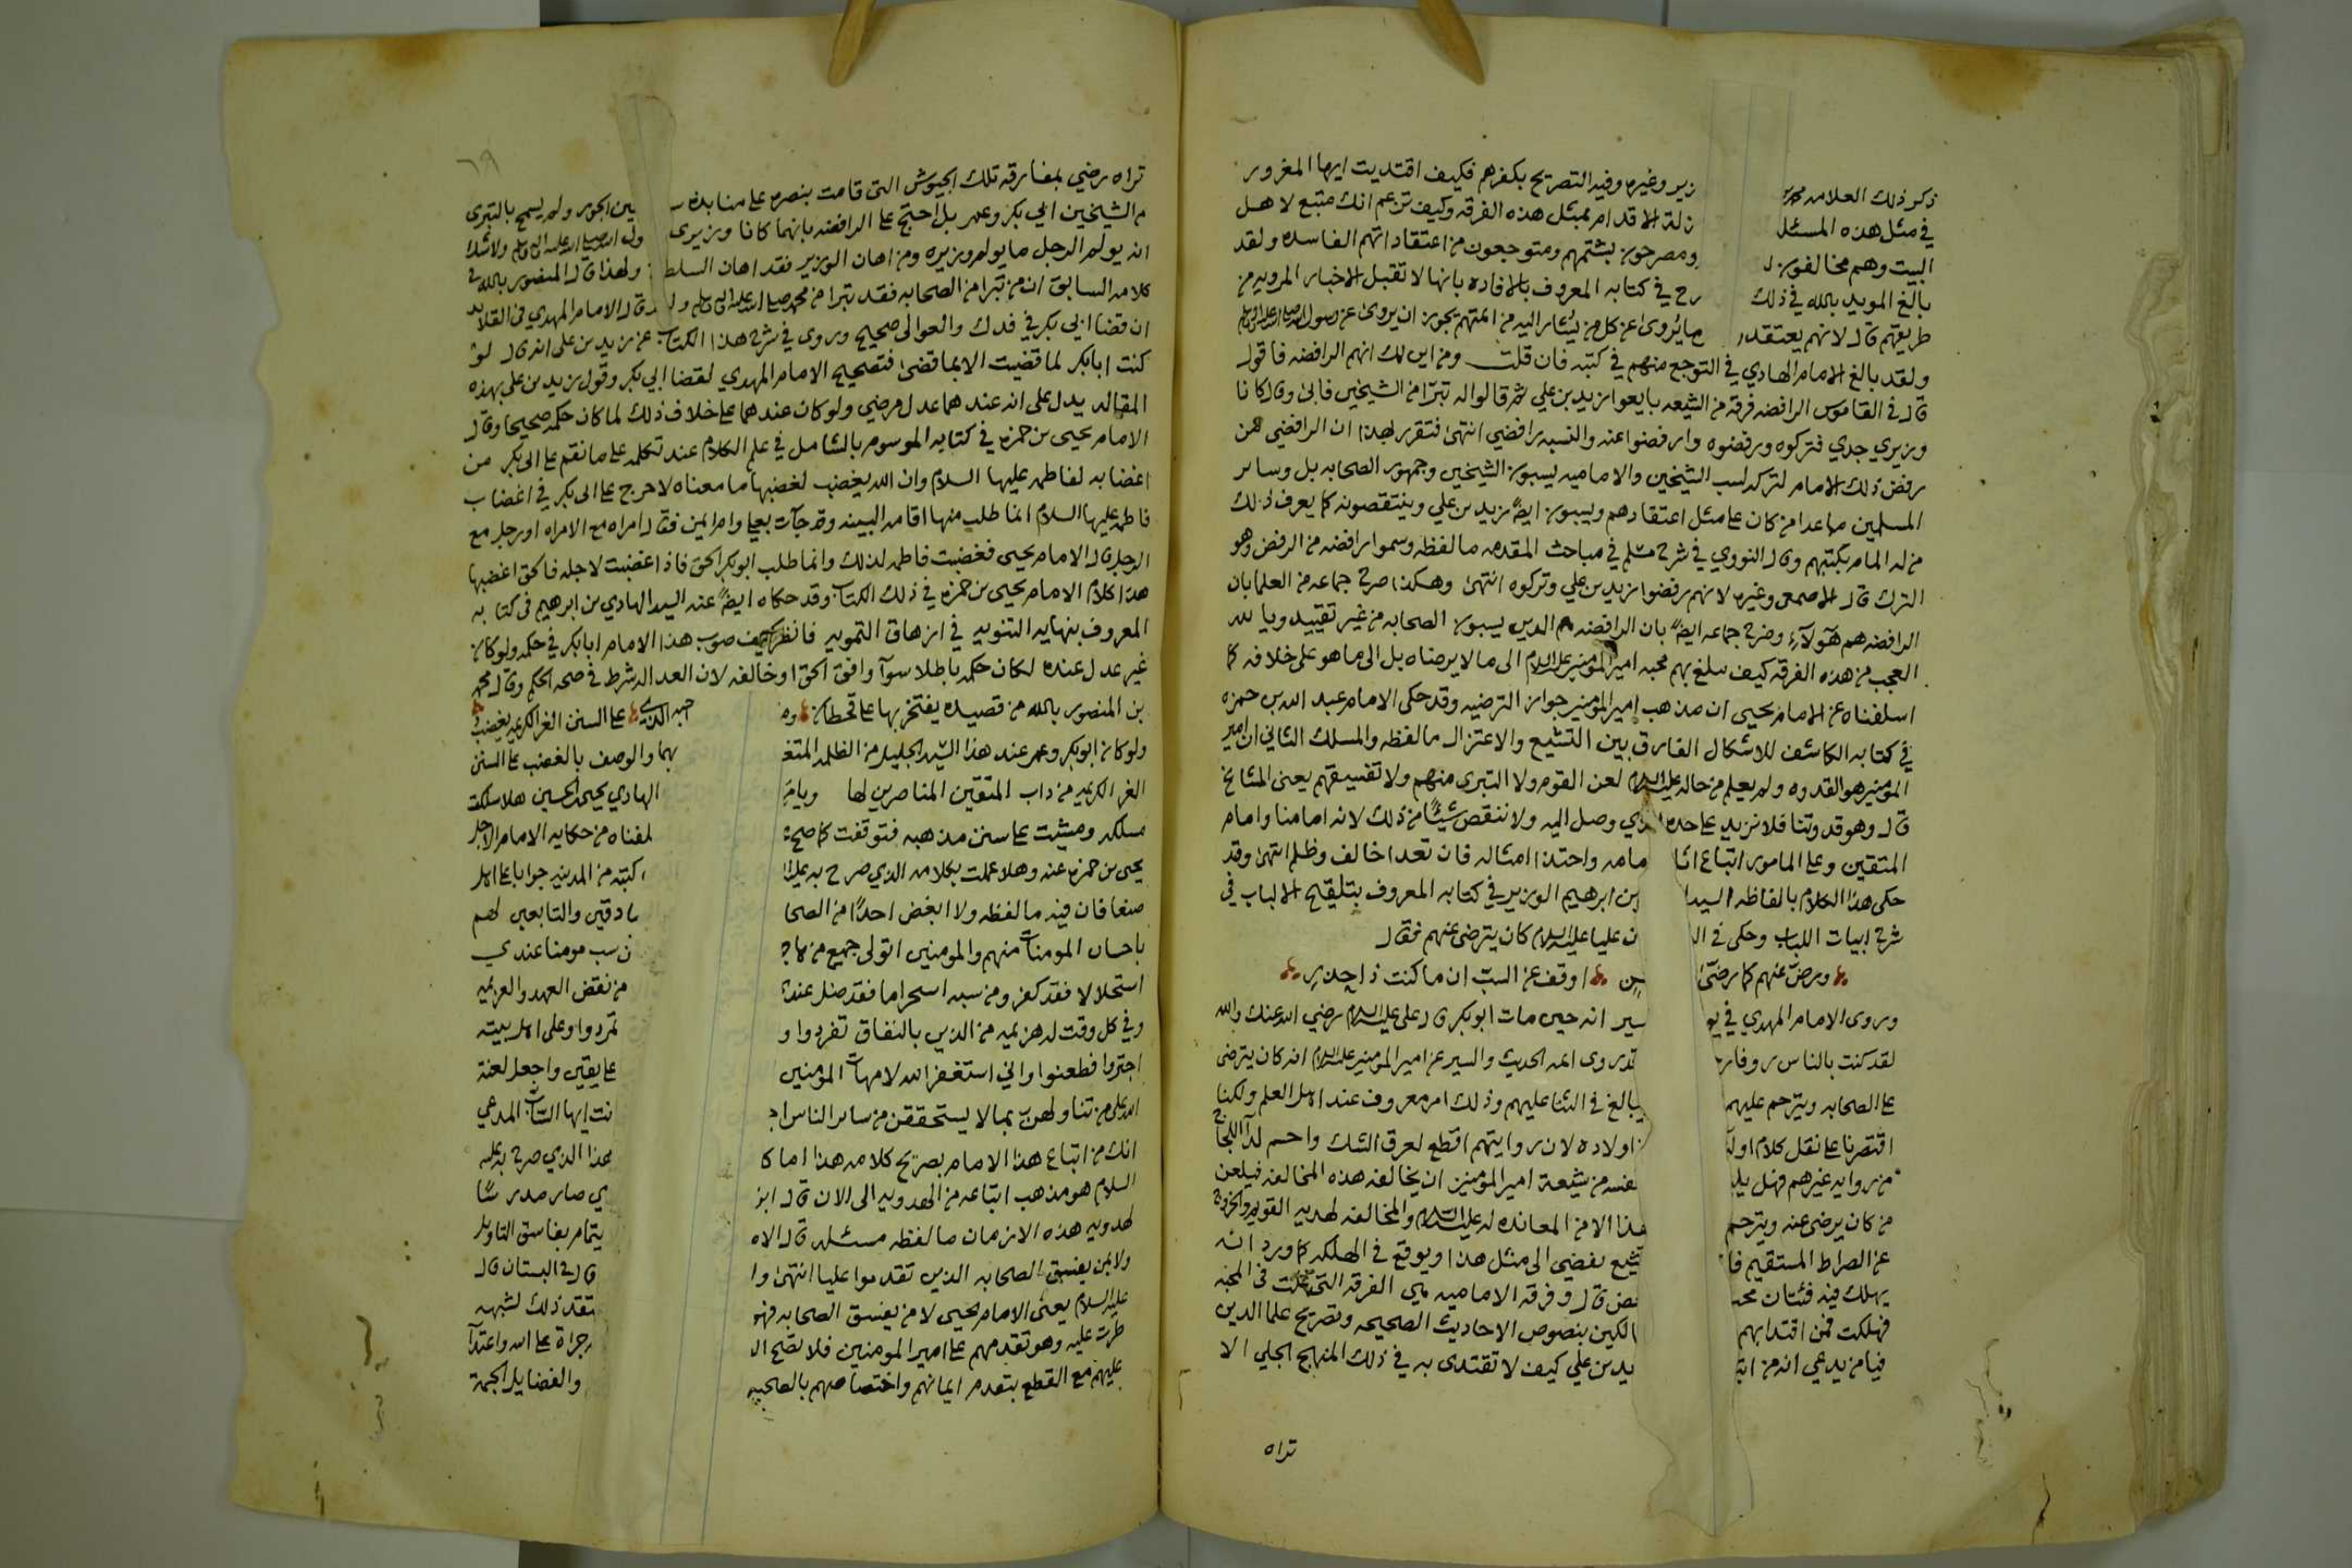 ذكر ذلك العلامه زير وغيره وفيه التصريح بكفرهم فكيف اقتديت ايها المغرور
في مثل هذه المسئله زلة الاقدام بمثل هذه الفرقه وكيف تزعم انك متبع لاهل
البيت وهم مخالفون ومصرحون بشتمهم ومتوجعون من اعتقاداتهم الفاسده ولقد
بالغ المويد بالله في ذلك رح في كتابه المعروف بالافاده بانها لا تقبل الاخبار المرويه من
طريقهم قال لانهم يعتقدون ما يُروى عن كل من يُشار اليه من ائمتهم يجوز ان يروى عن رسول الله صلى الله عليه واله وسلم
ولقد بالغ الامام الهادي في التوجع منهم في كتبه فان قلت ومن اين لك انهم الرافضه فاقول
قال في القاموس الرافضه فرقه من الشيعه بايعوا زيد بن علي ثم قالوا له تبرّا من الشيخين فابى وقال كانا
وزيري جدي فتركوه ورفضوه وارفضوا عنه والنسبه رافضي انتهى فتقرر لهذا ان الرافضي من
رفض ذلك الامام لتركه لسب الشيخين والاماميه يسبون الشيخين وجمهور الصحابه بل وسائر
المسلمين ما عدا من كان على مثل اعتقادهم ويسبون ايضًا زيد بن علي وينتقصونه كما يعرف ذلك
من له المام بكتبهم وقال النووي في شرح مسلم في مباحث المقدمه ما لفظه وسموا رافضه من الرفض وهو
الترك قال الاصمعي وغيره لانهم رفضوا زيد بن علي وتركوه انتهى وهكذا صرح جماعه من العلما بان
الرافضه هم هولآء وصرح جماعه ايضًا بان الرافضه هم الذين يسبون الصحابه من غير تقييد ويا لله
العجب من هذه الفرقه كيف سلغ بهم محبه امير المومنين عليه السلام الى ما لا يرضاه بل الى ما هو على خلافه كما
اسلفناه عن الامام يحيى ان مذهب امير المومنين جواز الترضيه وقد حكى الامام عبد الله بن حمزه
في كتابه الكاشف للاشكال الفارق بين التشيع والاعتزال ما لفظه والمسلك الثاني ان امير
المومنين هو القدوه ولم يعلم من حاله عليه السلام لعن القوم ولا التبري منهم ولا تفسيقهم يعنى المشائخ
قال وهو قدوتنا فلا نزيد على حده الذي وصل اليه ولا ننقص شيئًا من ذلك لانه امامنا وامام
المتقين وعلى الماموم اتباع اثا مامه واحتذا امثاله فان تعدا خالف وظلم انتهى وقد
حكى هذا الكلام بالفاظه السيد بن ابرهيم الوزير في كتابه المعروف بتلقيح الالباب في
شرح ابيات اللباب وحكى في ان عليا عليه السلام كان يترضى عنهم فقال
ورضّ عنهم كما رضّى ين اوقف عن السب ان ما كنت ذا حذر
وروى الامام المهدي في يو سير انه حين مات ابو بكر قال علي عليه السلام رضي الله عنك والله
لقد كنت بالناس روفا رح قد روى ائمه الحديث والسير عن امير المومنين عليه السلام انه كان يترضى
على الصحابه ويترحم عليهم يبالغ في الثنا عليهم وذلك امر معروف عند اهل العلم ولكنا
اقتصرنا على نقل كلام اولا اولاده لان روايتهم اقطع لعرق الشك واحسم لدآ اللجاج
من روايه غيرهم فهل يليق نفسه من شيعة امير المومنين ان يخالفه هذه المخالفه فيلعن
من كان يرضى عنه ويترحم هذا الا من المعانده له عليه السلام والمخالفه لهديه القويم والخروج
عن الصراط المستقيم فا تشيع يفضي الى مثل هذا ويوقع في الهلكه كما ورد انه
يهلك فيه فئتان محب غض قال وفرقه الاماميه هي الفرقه التي هلكت في المحبه
فهلكت فمن اقتدا بهم الكين بنصوص الاحاديث الصحيحه وتصريح علما الدين
فيا من يدعي انه من اتباع يد بن علي كيف لا تقتدى به في ذلك المنهج الجلي الا
تراه
٦٩
تراه رضي بمفارقة تلك الجيوش التي قامت بنصره على منابذة ين الجور ولم يسمح بالتبرى
من الشيخين ابي بكر وعمر بل احتج على الرافضه بانهما كانا وزيرى رسول الله صلى الله عليه واله وسلم ولا شك
انه يولم الرجل ما يولم وزيره ومن اهان الوزير فقد اهان السلطان ولهذا قال المنصور بالله في
كلامه السابق ان من تبرا من الصحابه فقد تبرا من محمد صلى الله عليه واله وسلم ولـ قال الامام المهدي في القلايد
ان قضا ابي بكر في فدك والعوالى صحيح وروى في شرح هذا الكتاب عن زيد بن على انه قال لو
كنت ابا بكر لما قضيت الا بما قضى فتصحيح الامام المهدي لقضا ابي بكر وقول زيد بن على بهذه
المقاله يدل على انه عندهما عدل مرضي ولو كان عندهما على خلاف ذلك لما كان حكمه صحيحا وقال
الامام يحيى بن حمزه في كتابه الموسوم بالشامل في علم الكلام عند تكلمه على ما نقم على ابى بكر من
اغضابه لفاطمه عليها السلام وان الله يغضب لغضبها ما معناه لا حرج على ابى بكر في اغضاب
فاطمه عليها السلام انما طلب منها اقامه البينه وقد جآت بعلي وام ايمن فقال امراه مع الامراه او رجل مع
الرجل قال الامام يحيى فغضبت فاطمه لذلك وانما طلب ابو بكر الحق فاذا غضبت لاجله فالحق اغضبها
هذا كلام الامام يحيى بن حمزه في ذلك الكتاب وقد حكاه ايضًا عنه السيد الهادي بن ابرهيم في كتابه
المعروف بنهايه التنويه في ازهاق التمويه فانظر كيف صوب هذا الامام ابا بكر في حكمه ولو كان
غير عدل عنده لكان حكمه باطلا سوآ وافق الحق او خالفه لان العداله شرط في صحه الحكم وقال محمد
بن المنصور بالله من قصيده يفتخر بها على قحطان على السنن الغر الكريم يغضب
ولو كان ابو بكر وعمر عند هذا السيد الجليل من الظلمه المتغـ بهما والوصف بالغضب على السنن
الغر الكريم من داب المتقين المناصرين لها ويا الهادي يحيى بن الحسين هلا سلكت
مسلكه ومشيت على سنن مذهبه فتوقفت كما صح لفناه من حكايه الامام الاجل
يحيى بن حمزه عنه وهلا عملت بكلامه الذي صرح به كتبه من المدينه جوابا على اهل
صنعا فان فيه ما لفظه ولا ابغض احدًا من الصحا ادقين والتابعين لهم
باحسان المومنات منهم والمومنين اتولى جميع من ن سب مومنا عندي
استحلالا فقد كفر ومن سبه استحراما فقد ضل عند من نقض العهد والعزيمه
وفي كل وقت له هزيمه من الذين بالنفاق تفردوا و تمردوا وعلى اهل بيته
اجتروا فطعنوا واني استغفر الله لامهات المومنين على يقين واجعل لعنة
الله على من تناولهن بما لا يستحققن من سائر الناس انت ايها الشاب المدعي
انك من اتباع هذا الامام بصريح كلامه هذا اما كا هذا الذي صرح به عليه
السلام هو مذهب اتباعه من الهدويه الى الان قال ي صار مدرسًا
لهدويه هذه الازمان ما لفظه مسئله قال الا يتمام بفاسق التاويل
ولا بمن يفسق الصحابه الذين تقدموا عليا انتهى قال في البستان قال
عليه السلام يعنى الامام يحيى لا من يفسق الصحابه فهو يتقد ذلك لشبهه
طرت عليه وهو تقدمهم على امير المومنين فلا تصح جراة على الله واعتدآ
عليهم مع القطع بتقدم ايمانهم واختصاصهم بالصحبه والفضايل الجمة